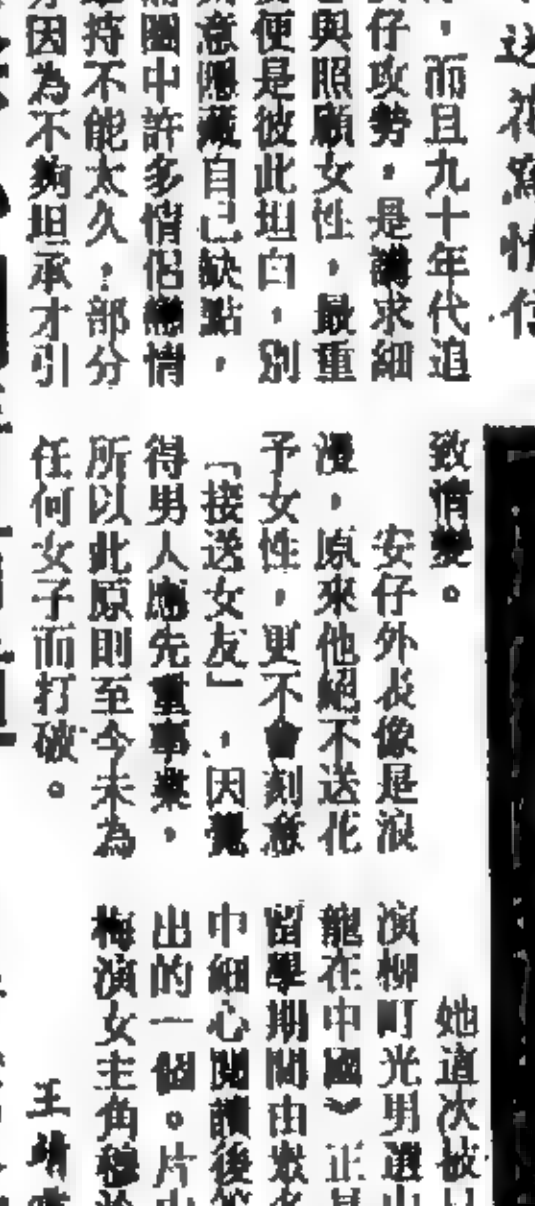 送花寫情信
，而且九十年代追
仔攻勢，是講求細
與照顧女性，最重
便是彼此坦白，別
意隱藏自己缺點，
圈中許多情侶戀情
持不能太久，部分
因為不夠坦承才引
致情變。
安仔外表像是浪
漫，原來他絕不送花
予女性，更不會刻意
「接送女友」，因覺
得男人應先重事業，
所以此原則至今未為
任何女子而打破。
她這次被
演柳町光男選
龍在中國》正
留學期間由眾
中細心閱讀後
出的一個。片
梅演女主角
王